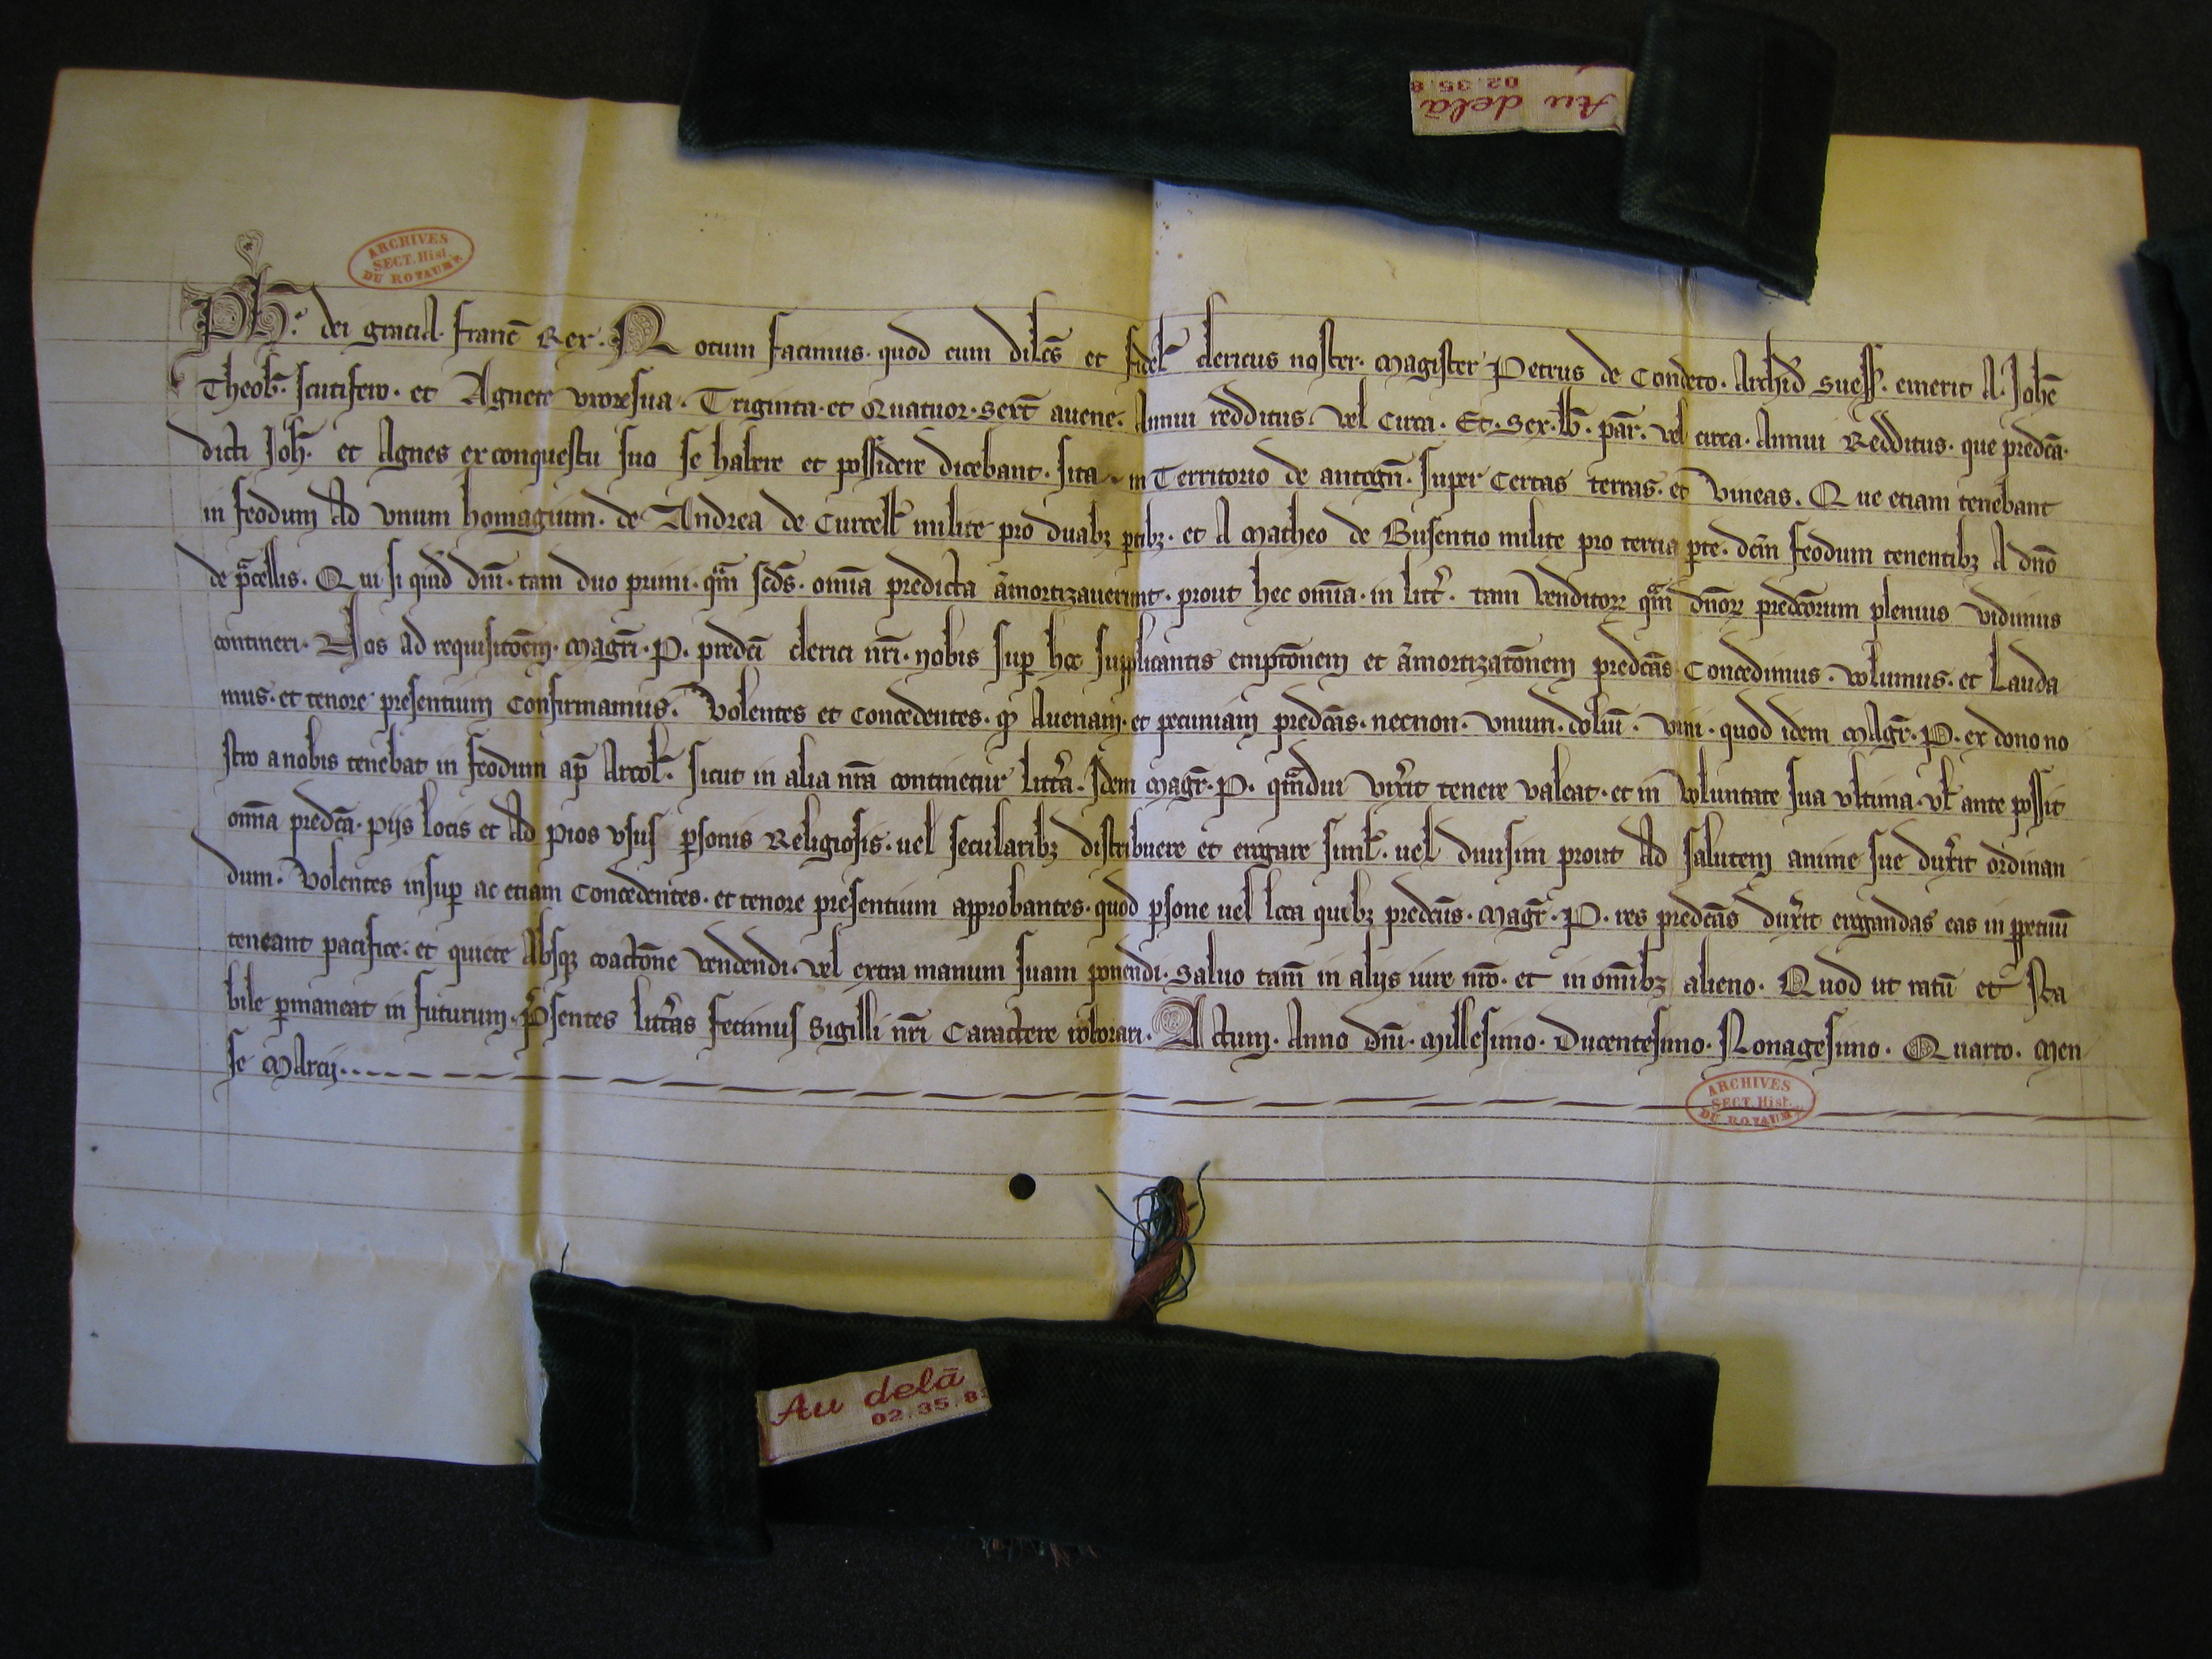 ARCHIVES
SECT. Hist.
DU ROYAUME
Au delà
02.35.8
Ph. dei gracia francͦ Rex. Notum facimus. quod cum dilc̄s et fidel̄ clericus noster. Magister Petrus de Condeto. Archid̄ Suess̄. emerit A. Joh̄e
Theob̄. scutifero. et Agnete uxore sua. Triginta et Quatuor. Sext̄ avene. Annui redditus. vel circa. Et. Sex. lb̄. par̄. vel circa. Annui Redditus. que predc̄a.
dicti Joh̄. et Agnes ex conquestu suo se habere et possidere dicebant. sita in Territorio de antogn̄. super Certas terras. et vineas. Que etiam tenebant
in feodum Ad vnum homagium. de Andrea de Curcell̄ milite pro duabꝫ ꝑtibꝫ. et A Matheo de Busentio milite pro tertia ꝑte. dc̄m feodum tenentibꝫ A dn̄o
de pͣcellis. Qui siquid̄ dn̄i. tam duo primi. qͣm scd̄s. omīa predicta āmortizauerunt. prout hec omīa. in litt̄. tam venditoꝝ qͣm dn̄oꝝ predc̄orum plenius vidimus
contineri. Nos ad requisitōem. magr̄i. P. predc̄i clerici nr̄i. nobis suꝑ hoc supplicantis emptōnem et āmortizatōnem predc̄as Concedimus. volumus. et Lauda
mus. et tenore presentium Confirmamus. Volentes et Concedentes. ꝙ Auenam. et pecuniam predc̄as. necnon. vnum. doliū. vini. quod idem Magr̄. P. ex dono no
stro a nobis tenebat in feodum ap̄ Arcol̄. sicut in alia nr̄a continetur litt̄a. Idem Magr̄. P. qͣmdiu vix̄it tenere valeat. et in voluntate sua vltima. vl̄ ante possit
omīa predc̄a. pijs locis et Ad pios vsus ꝑsonis Religiosis. uel secularibꝫ distribuere et erogare simil̄. uel diuisim prout Ad salutem anime sue dux̄it ordinan
dum. Volentes insuꝑ ac etiam Concedentes. et tenore presentium approbantes. quod ꝑsone uel loca quibꝫ predc̄us. Magr̄. P. res predc̄as dux̄it erogandas eas in ꝑpetuū
teneant pacifice. et quiete Absqꝫ coactōne vendendi. vel extra manum suam ponendi. Saluo tam̄ in alijs iure nr̄o. et in omībꝫ alieno. Quod ut ratū et sta
bile ꝑmaneat in futurum. p̄sentes litt̄as fecimus Sigilli nr̄i Caractere roborari. Actum. Anno dn̄i. Millesimo. Ducentesimo. Nonagesimo. Quarto. Men
se Marcij.
ARCHIVES
SECT. Hist.
DU ROYAUME
Au delà
02.35.8